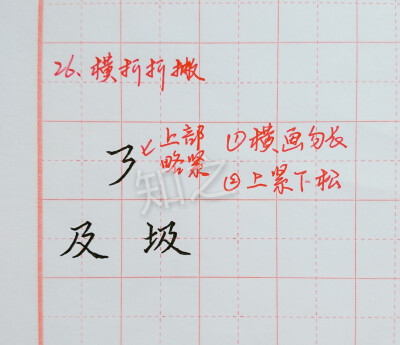 26、横折折撇
㇋ 上部 ①横画勿长
略紧 ②上紧下松
知之
及 圾